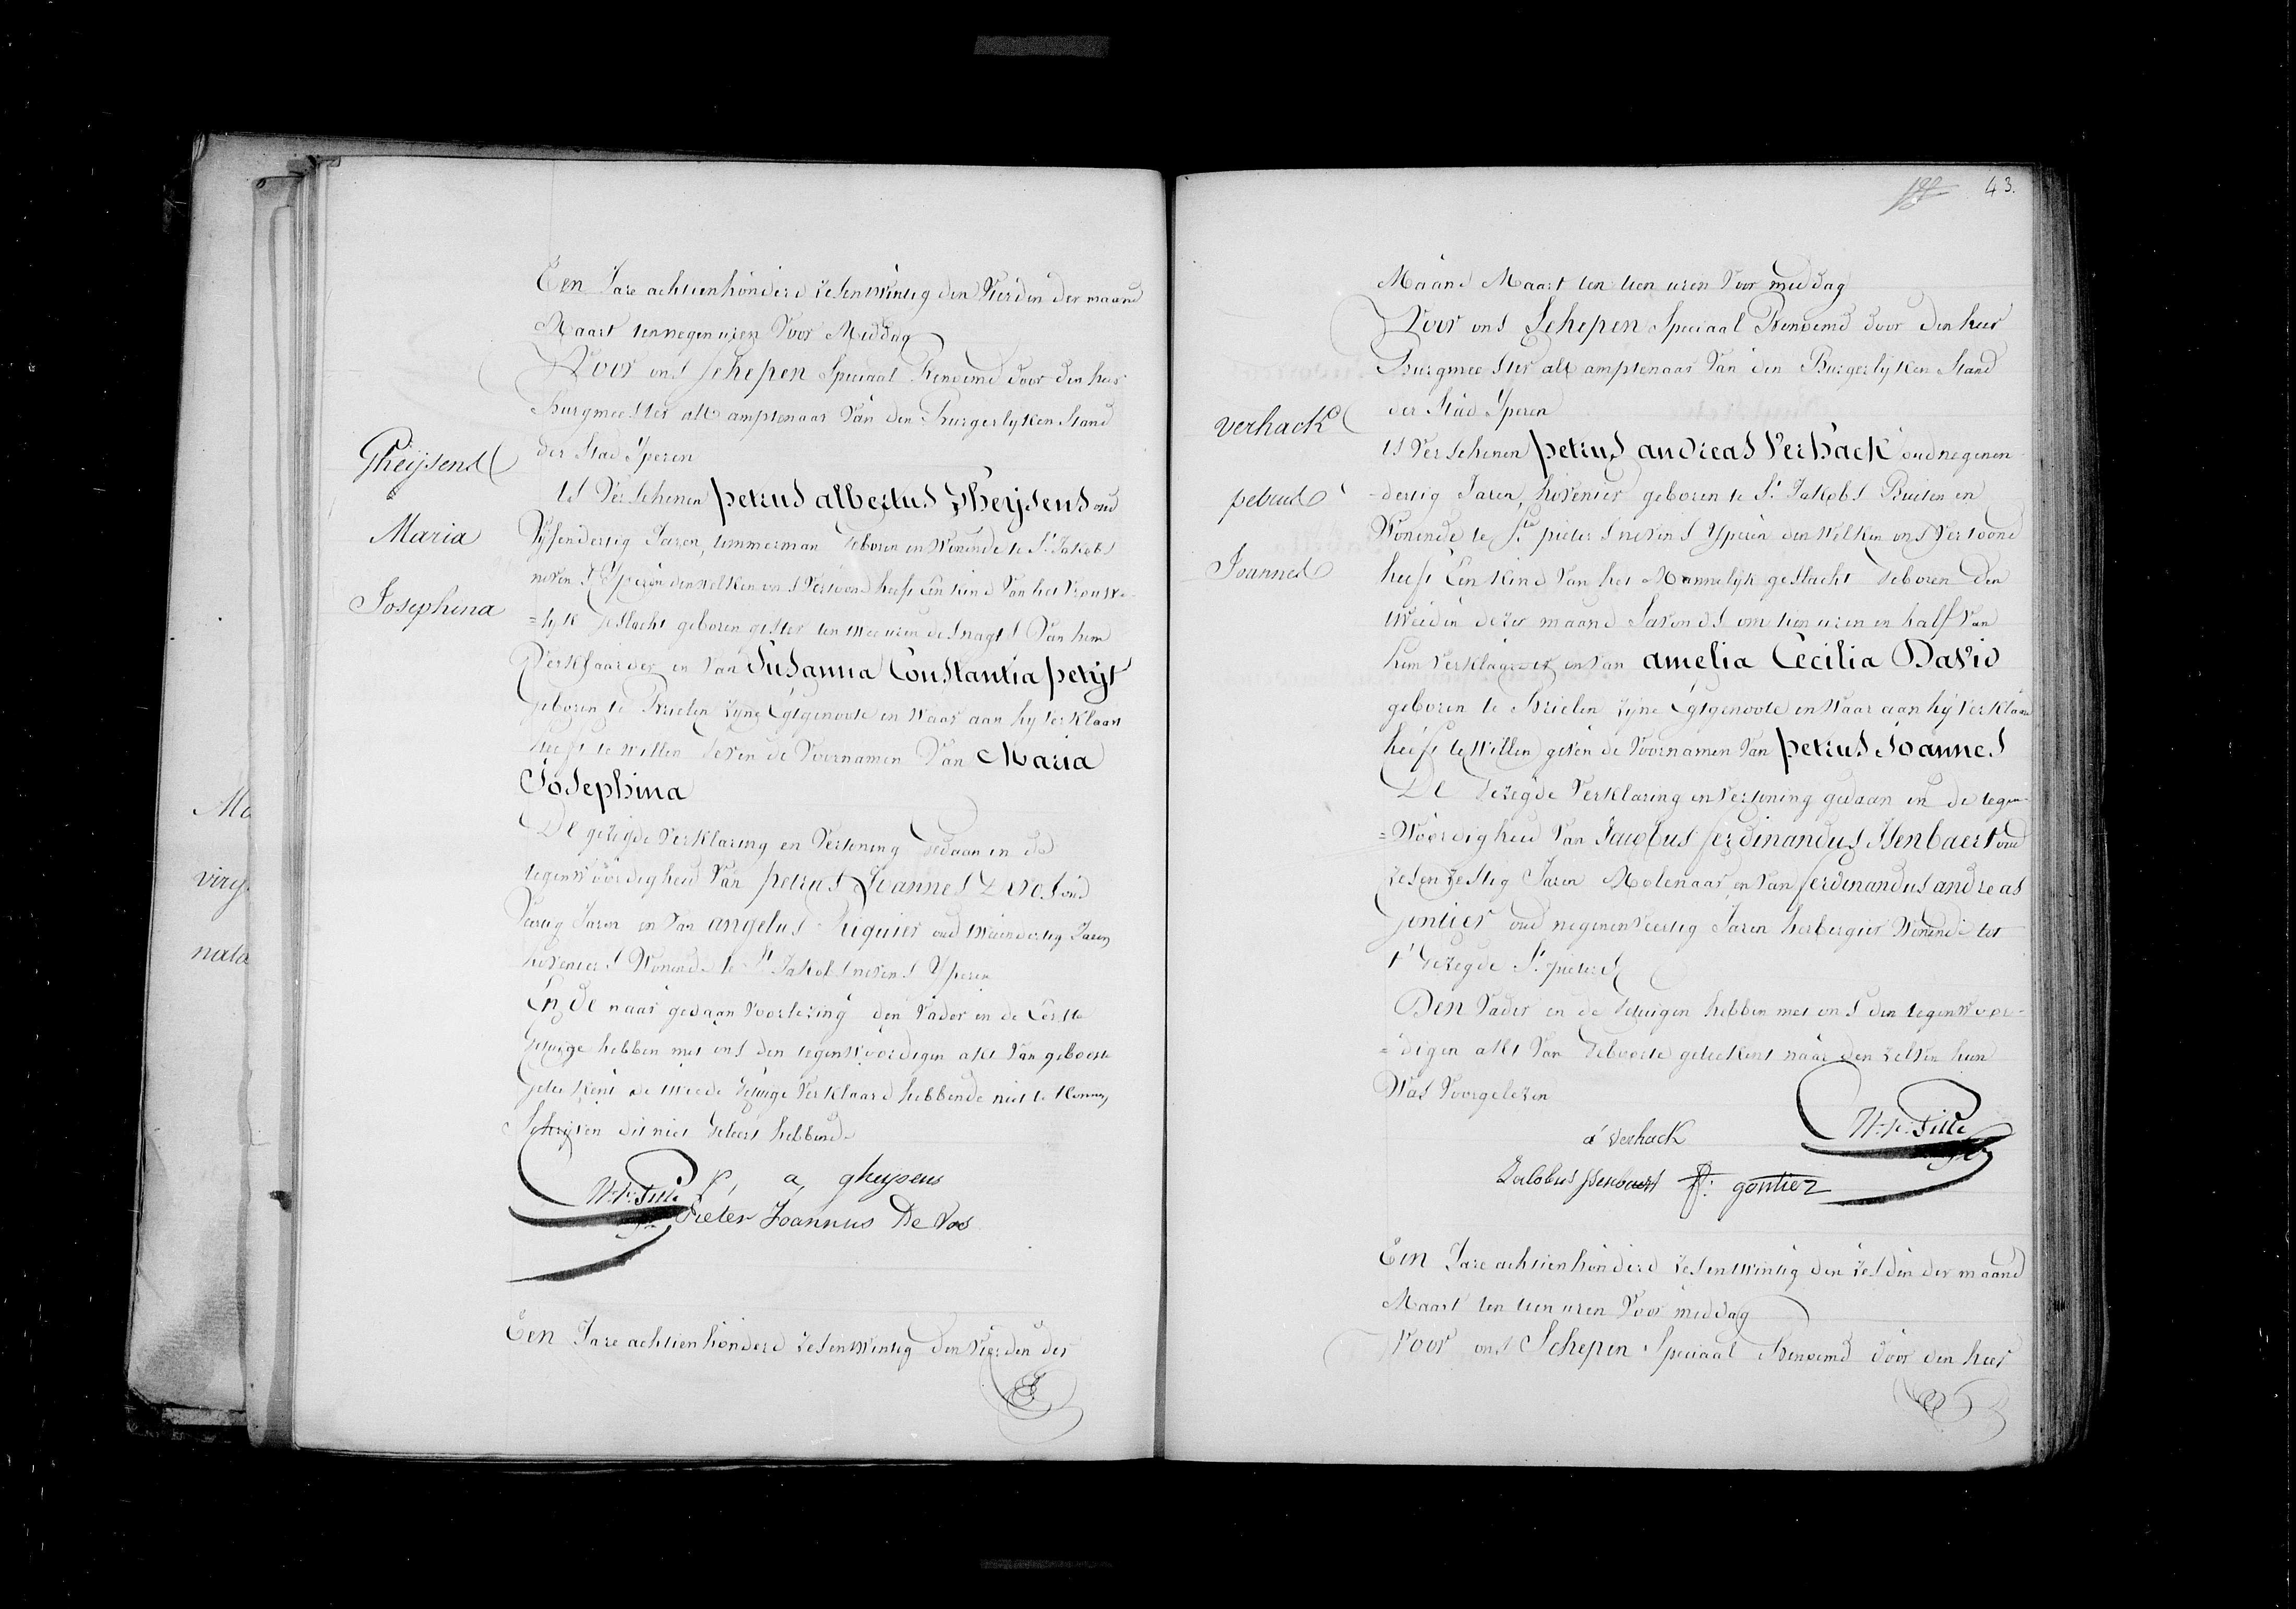 Een Jare achtienhonderd zesentwintig den vierden der maand
Maart ten negen uren voor Middag
Voor ons schepen Speciaal Benoemd door den heer
Burgmeester als amptenaar van den Burgerlyken Stand
der Stad Yperen
Gheijsens
Maria
Josephina
Is Verschenen petrus albertus Gheijsens oud
Vyfendertig Jaren, timmerman Geboren en Wonende te St. Jakobs
nevens Yperen denwelken ons Vertoond heeft Een kind Van het Vrouwe-
=lyk Geslacht geboren gister ten twee uren des nagts Van hem
Verklaarder en van Susanna Constantia petijt
Geboren te Brielen zyne Egtgenoote en Waar aan hy Verklaart
heeft te willen Geven de Voornamen Van Maria
Josephina
De gezegde Verklaring en Vertoning Gedaan in de
tegenwoordigheid Van petrus Joannes De Vos oud
Veertig Jaren en Van angelus Riquier oud tweendertig Jaren
hoveniers Wonende te St Jakobs nevens Yperen
Ende naar gedaan Voorlezing den Vader en de Eerste
Getuige hebben met ons den tegenwoordigen akt Van geboorte
Geteekent de tweede Getuige Verklaard hebbende niet te Konnen
Schrijven dit niet Geleert hebbende
p, a, gheysens
Pieter Joannus De Vos
Een Jare achtienhonderd zesentwintig den Vierden der
43.
Maand Maart ten tien uren Voor middag
Voor ons Schepen Speciaal Benoemd door den heer
Burgmeester als amptenaar Van den Burgerlyken Stand
der Stad Yperen
verhack
petrus
Joannes
Is Verschenen petrus andreas Verhack oud negenen-
-dertig Jaren, hovenier geboren te St. Jakobs Buiten en
Wonende te St. pieters nevens Yperen den welken ons Vertoond
heeft Een kind Van het Mannelyk geslacht Geboren den
tweeden dezer maand Savonds om tien uren en half Van
hem Verklaarder en van amelia Cecilia David
geboren te Brielen zyne Egtgenoote en Waar aan hy Verklaard
heeft te Willen geven de Voornamen Van petrus Joannes
De Gezegde Verklaring en Vertoning gedaan in de tegen-
=Woordigheid Van Jacobus ferdinandus Isenbaert oud
zesenzestig Jaren Molenaar en Van ferdinandus andreas
Gontier oud negenenveertig Jaren herbergier Wonende tot
t' Gezegde St. pieters
Den Vader en de Getuigen hebben met ons den tegenwoor-
=digen akt Van Geboorte geteekent naar den zelven hun
Was Voorgelezen
a verhack
Jacobus Isenbaert F: gontier
Een Jare achtienhonderd zesentwintig den zesden der maand
Maart ten tien uren Voor middag
Voor ons Schepen Speciaal Benoemd door den heer